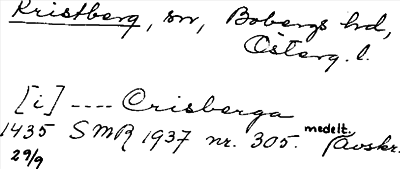 Kristberg, sn, Bobergs hd,
Österg. l.
[i] ---- Crisberga
1435 SMR 1937 nr. 305. medelt. Avskr.
29/9